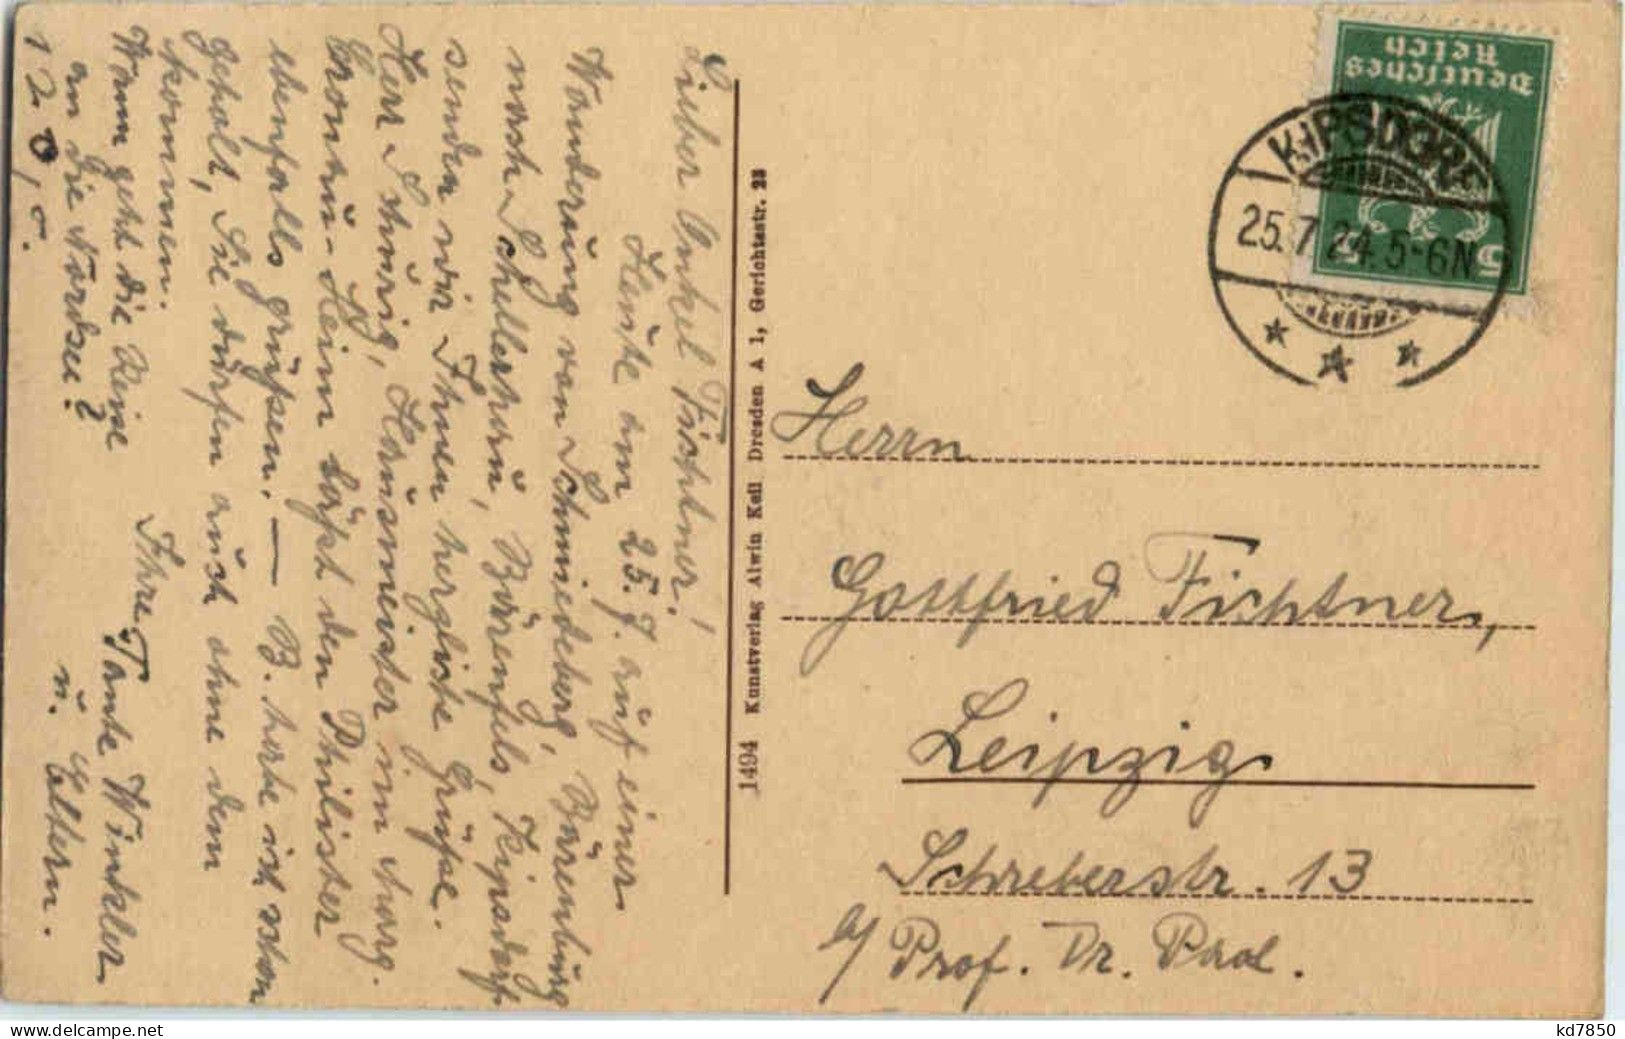 Lieber Onkel Fichtner!
Heute am 25.7. auf einer
Wanderung von Schmiedeberg, Bärenburg
nach Schellerhau, Bärenfels, Kipsdorf
senden wir Ihnen herzliche Grüße.
Herr Hausmeister im
Heim läßt den Philister
ebenfalls grüßen. — B. habe ich schon
geholt, Sie dürfen auch ohne dem
kommen.
Wann geht die Reise
an die Nordsee?
Ihre Tante Winkler
u. Eltern.
120,-.
1494 Kunstverlag Alwin Keil Dresden A 1, Gerichtsstr. 23
Deutsches
Reich
5 5
KIPSDORF
25.7.24.5-6N
Herrn
Gottfried Fichtner,
Leipzig
Schreberstr. 13
b/ Prof. Dr. Paul.
kd7850